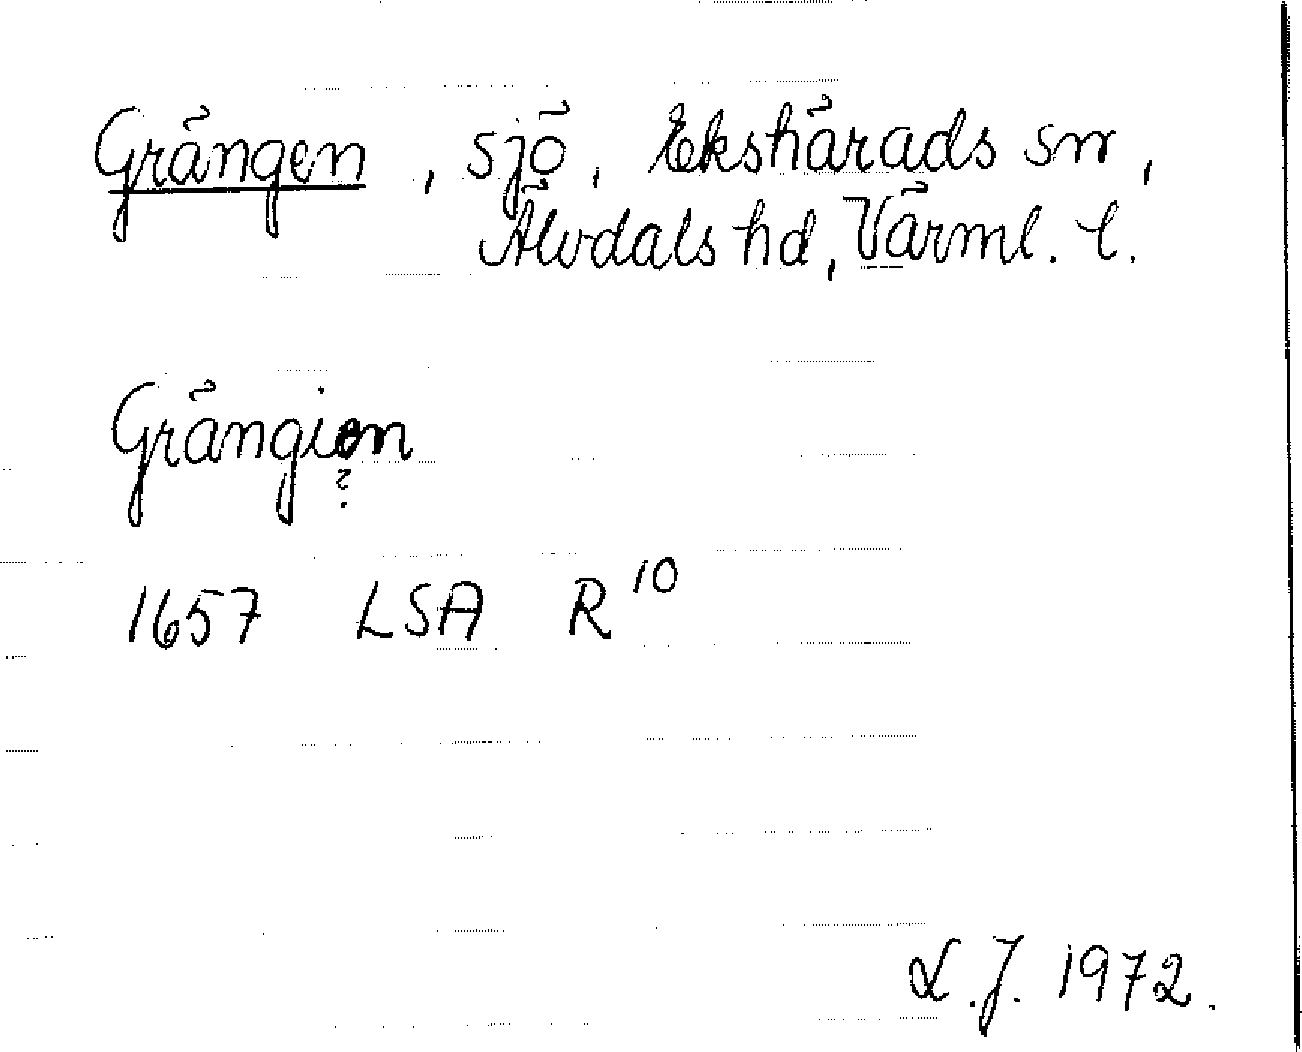 Grängen, sjö, Ekshärads sn,
Älvdals hd, Värml. l.
Grängien
?
1657 LSA R 10
L.J. 1972.